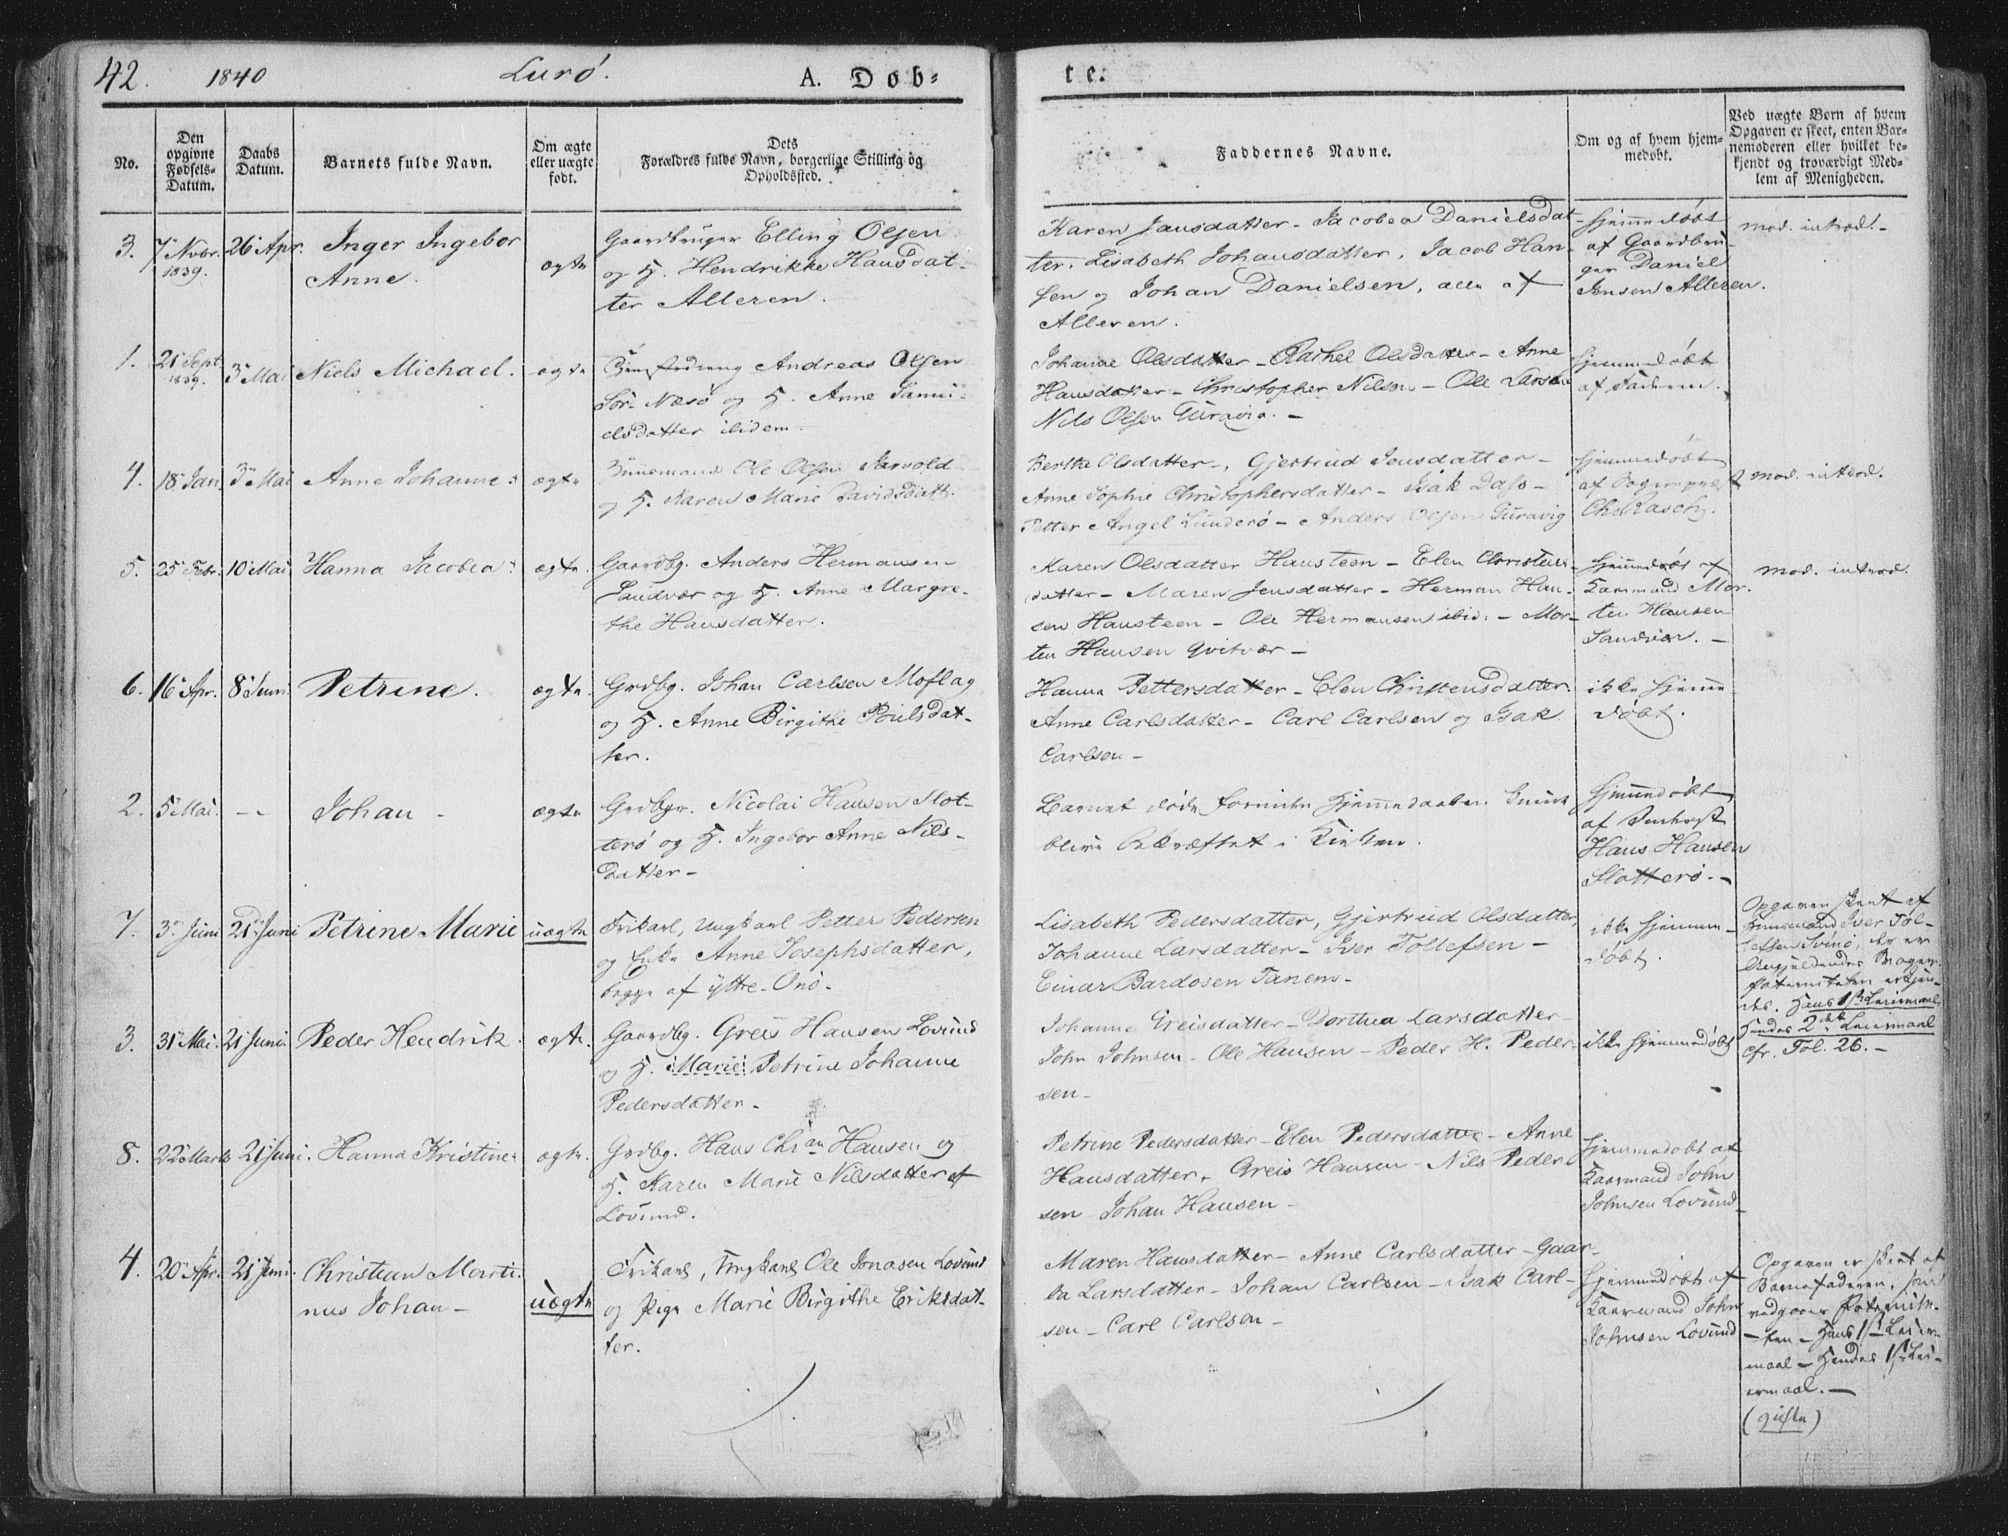 42. 1840 Lurö. A. Döb-
te.
No.
Den opgivne Fødsels-Datum.
Daabs Datum.
Barnets fulde Navn.
Om ægte eller uægte født.
Dets Forældres fulde Navn, borgerlige Stilling og Opholdssted.
Faddernes Navne.
Om og af hvem hjemmedøbt.
Ved uægte Børn af hvem
Opgaven er skeet, enten Bar-
nemoderen eller hvilket be-
kjendt og troværdigt Med-
lem af Menigheden.
3. 7 Novbr. 1839. 26 Apr. Inger Ingebor
Anne.
ægte
Gaardbruger Elling Olsen
og H. Hendrikke Hansdat-
ter Alleren.
Karen Jansdatter - Jacobea Danielsdat-
ter. Lisabeth Johansdatter, Jacob Han-
sen og Johan Danielsen, alle af
Alleren.
hjemmedöbt
af Gaardbru-
ger Daniel
Jensen Alleren.
mod. introd. -
1. 21 Sept. 1839. 3 Mai Niels Michael. ægte
Andreas Olsen
Sör-Næsö og H. Anne Samu-
elsdatter ibidem.
Johanne Olsdatter - Rachel Olsdatter - Anne
Hansdatter - Christopher Nilsen - Ole Larsen
Nils Olsen Guravig. -
hjemmedöbt
af Faderen.
4. 18 Jan. 3 Mai Anne Johanne. ægte
Ole Olsen
og H. Marie Davidsdatt.
Berthe Olsdatter -, Gjertrud Jensdatter -
Anne Sophie Christophersdatter - Isak Dass -
Petter Angel Lunderö - Anders Olsen Guravig
hjemmedöbt
af Sogneprest
Chr. Rasch.
mod. introd.
5. 25 Febr. 10 Mai Hanna Jacobea. ægte.
Gaardbg. Anders Hermansen
Sandvær og H. Anne Margre-
the Hansdatter.
Karen Olsdatter Hansteen - Elen Christens-
datter - Maren Jensdatter - Herman Han-
sen Hansteen - Ole Hermansen ibid. - Mor-
ten Hansen Qvitvær -
hjemmedöbt af
Kaarmand Mor-
ten Hansen
Sandvær. -
mod. introd.
6. 16 Apr. 8 Juni Petrine. ægte.
Grdbg. Johan Carlsen Moflag
og H. Anne Birgithe Poulsdat-
ter.
Hanna Pettersdatter - Elen Christensdatter.
Anne Carlsdatter - Carl Carlsen og Isak
Carlsen -
ikke hjemme-
döbt.
2. 5 Mai. - - Johan - ægte.
Grdbgr. Nicolai Hansen Slot-
terö og H. Ingebor Anne Nils-
datter -
Barnet döde forinden Hjemmedaaben kunde
blive bekræftet i Kirken.
hjemmedöbt
af
Hans Hansen
Slotterö. -
7. 3 Juni 21 Juni Petrine Marie uægte
Frikarl, Ungkarl Petter Pedersen
og Enke Anne Josephsdatter,
begge af yttre-Onö.
Lisabeth Pedersdatter, Gjertrud Olsdatter,
Johanne Larsdatter - Iver Tollefsen -
Einar Bardosen Tanem -
ikke hjemme-
döbt.
Opgaven skeet af
Huusmand Iver Tol-
lefsen Svinö, der er
Hans 1ste Leiermaal
Hendes 2det Leiermaal
cfr. Fol. 26. -
3. 31 Mai. 21 Juni. Peder Hendrik. ægte.
Gaardbg. Greis Hansen Lovund
og H. Marie Petrine Johanne
Pedersdatter -
Johanne Greisdatter - Dorthea Larsdatter
John Johnsen - Ole Hansen - Peder H. Peder-
sen -
ikke hjemmedöbt
8. 22 Marts 21 Juni. Hanna Kristine. ægte.
Grdbg. Hans Chran Hansen og
H. Karen Marie Nilsdatter af
Lovund.
Petrine Pedersdatter - Elen Pedersdatter - Anne
Hansdatter, Greis Hansen - Nils Peder-
sen - Johan Hansen -
hjemmedöbt af
Kaarmand John
Johnsen Lovund -
4. 20 Apr. 21 Juni. Christian Marti-
nus Johan -
uægte
Frikarl, Ungkarl Ole Jonasen Lovund
og Pige Marie Birgithe Eriksdat-
ter.
Maren Hansdatter - Anne Carlsdatter - Gaar-
da Larsdatter - Johan Carlsen - Isak Carl-
sen - Carl Carlson -
hjemmedöbt af
Kaarmand John
Johnsen Lovund
Opgaven er skeet af
Barnefaderen, som
vedgaaer Paternite-
ten - Hans 1ste Leier-
maal - Hendes 1ste Lei-
ermaal. -
(gifte)